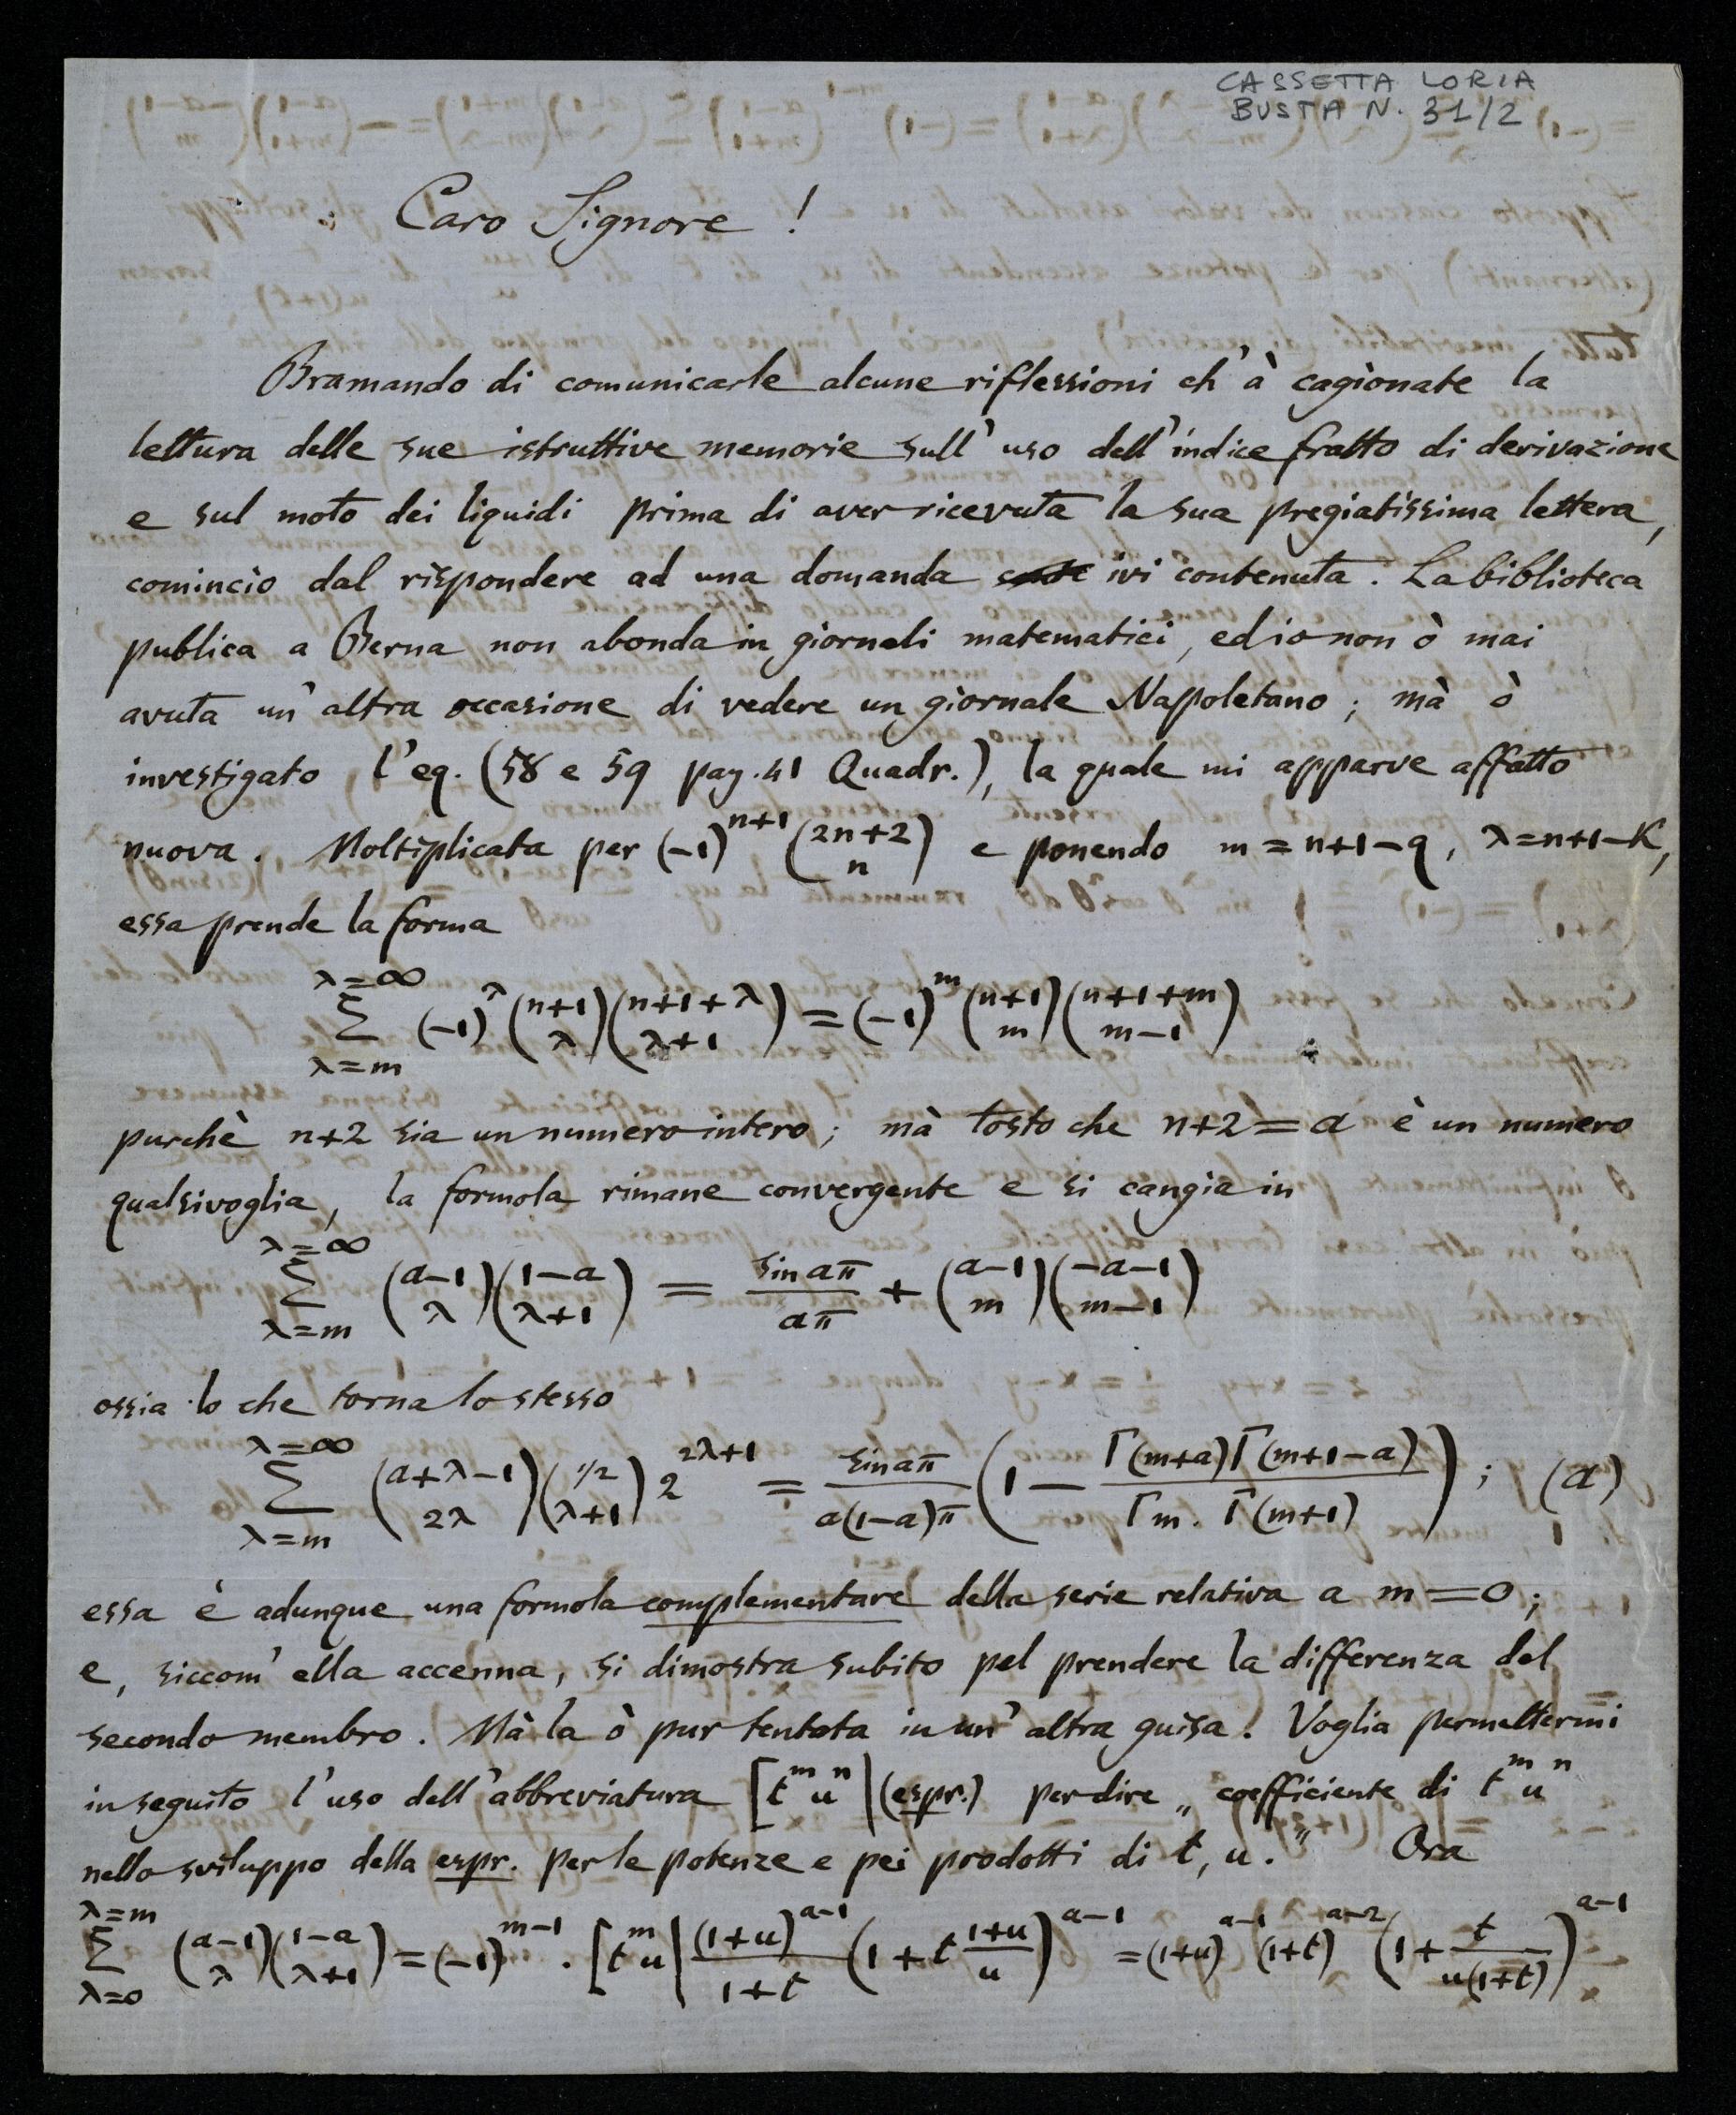 CASSETTA LORIA
BUSTA N. 31/2
Caro Signore !
Bramando di comunicarle alcune riflessioni ch'à cagionate la
lettura delle sue istruttive memorie sull'uso dell'indice fratto di derivazione
e sul moto dei liquidi prima di aver ricevuta la sua pregiatissima lettera,
comincio dal rispondere ad una domanda ivi contenuta. La biblioteca
publica a Berna non abonda in giornali matematici, ed io non ò mai
avuta un'altra occasione di vedere un giornale Napoletano; mà ò
investigato l'eq. (58 e 59 pag. 41 Quadr.), la quale mi apparve affatto
nuova. Moltiplicata per (-1)^{n+1} \binom{2n+2}{n} e ponendo m = n+1-q, λ = n+1-K,
essa prende la forma
\sum_{λ=m}^{λ=∞} (-1)^λ \binom{n+1}{λ}\binom{n+1+λ}{λ+1} = (-1)^m \binom{n+1}{m}\binom{n+1+m}{m-1}
purchè n+2 sia un numero intero; mà tosto che n+2 = a è un numero
qualsivoglia, la formola rimane convergente e si cangia in
\sum_{λ=m}^{λ=∞} \binom{a-1}{λ}\binom{1-a}{λ+1} = \frac{sin aπ}{aπ} + \binom{a-1}{m}\binom{-a-1}{m-1}
ossia lo che torna lo stesso
\sum_{λ=m}^{λ=∞} \binom{a+λ-1}{2λ}\binom{1/2}{λ+1} 2^{2λ+1} = \frac{sin aπ}{a(1-a)π} (1 - \frac{Γ(m+a)Γ(m+1-a)}{Γm. Γ(m+1)}); (a)
essa è adunque una formola complementare della serie relativa a m = 0;
e, siccom' ella accenna, si dimostra subito pel prendere la differenza del
secondo membro. Mà la ò pur tentata in un' altra guisa. Voglia permettermi
in seguito l'uso dell'abbreviatura [t^m u^n | (espr.) per dire „ coefficiente di t^m u^n
nello sviluppo della espr. per le potenze e pei prodotti di t, u." Ora
\sum_{λ=0}^{λ=m} \binom{a-1}{λ}\binom{1-a}{λ+1} = (-1)^{m-1} . [t^m u | \frac{(1+u)^{a-1}}{1+t} (1 + t \frac{1+u}{u})^{a-1} = (1+u)^{a-1} (1+t)^{a-2} (1 + \frac{t}{u(1+t)})^{a-1}